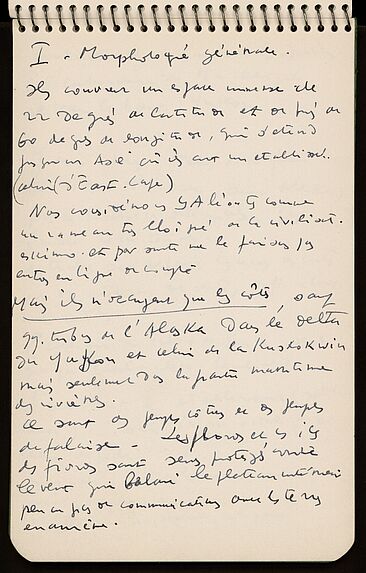 I - Morphologie générale.
Ils couvrent un espace immense de
22 degrés de latitude et de près de
60 degrés de longitude, qui s'étend
jusqu'en Asie où ils ont un établist.
(celui d'East-Cape)
Nous considérons les Aléoutes comme
un rameau très éloigné de la civilisat.
eskimo et par suite ne le faisons pas
entrer en ligne de compte
Mais ils n'occupent que les côtes, sauf
qq. tribus de l'Alaska dans le delta
du Yukon et celui de la Kuskokwin
mais seulement dans la partie maritime
des rivières.
Ce sont des peuples côtiers et des peuples
de falaise - Les fjords et les îles
des fjords sont seuls protégés contre
le vent qui balaie le plateau intérieur
peu ou pas de communications avec les terres
en arrière.